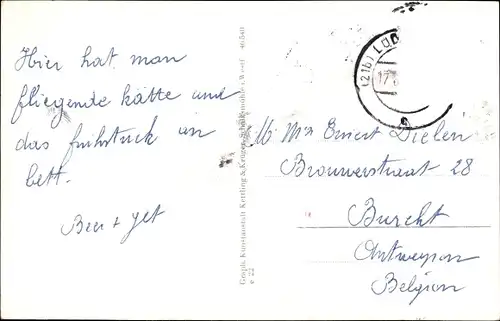 Hier hat man
fliegende kätte und
das frühstuck in
bett.
Beer + Jet
Graph. Kunstanstalt Kettling & Krüger, Schalksmühle i. Westf. 46/540
e 22
(21b) LÜD
17.
M. Mme Ernest Dielen
Brouwerstraat 28
Burcht
Antwerpen
Belgien